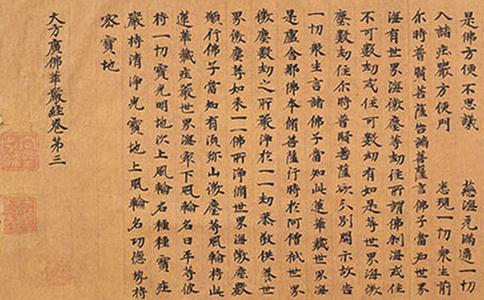 是佛方便不思議　慈海充滿遍一切
入諸莊嚴方便門　現一切衆生前
尒時普賢菩薩告諸菩薩言佛子當知世界
海有世界海微塵等劫住所謂佛刹海或住
不可數劫或住可數劫有如是等世界海微
塵數劫住尒時普賢菩薩欲分別開示故告
一切衆生言諸佛子當知此蓮華藏世界海
是盧舍那佛本脩菩薩行時於阿僧祇世界
微塵數劫之所嚴淨於一一劫恭敬供養世
界微塵等如來一一佛所淨脩世界海微塵數
願行佛子當知有須弥山微塵等風輪持此
蓮華藏莊嚴世界海冣下風輪名曰平等彼
持一切寶光明地次上風輪名種種寶莊
嚴持清淨光寶地上風輪名功德勢持
密寶地
大方廣佛華嚴經卷第三